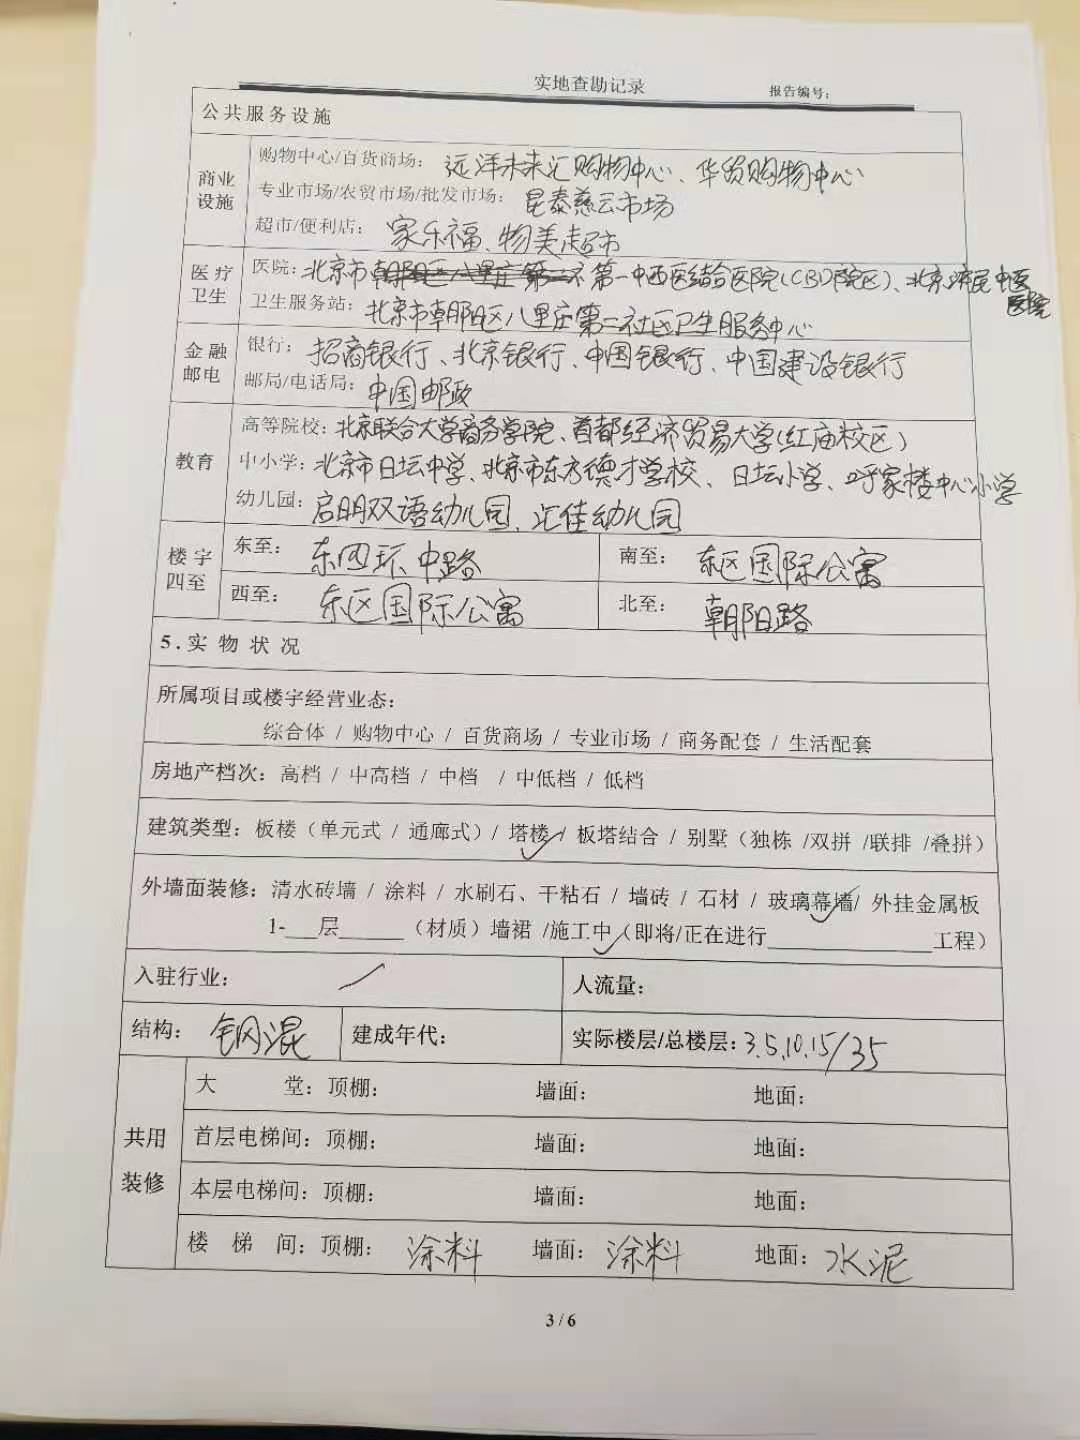 实地查勘记录 报告编号:
公共服务设施
商业设施
购物中心/百货商场: 远洋未来汇购物中心、华贸购物中心
专业市场/农贸市场/批发市场: 昆泰慈云市场
超市/便利店: 家乐福、物美超市
医疗卫生
医院: 北京市第一中西医结合医院(CBD院区)、北京济民中医医院
卫生服务站: 北京市朝阳区八里庄第二社区卫生服务中心
金融邮电
银行: 招商银行、北京银行、中国银行、中国建设银行
邮局/电话局: 中国邮政
教育
高等院校: 北京联合大学商务学院、首都经济贸易大学(红庙校区)
中小学: 北京市日坛中学、北京市东方德才学校、日坛小学、呼家楼中心小学
幼儿园: 启明双语幼儿园、汇佳幼儿园
楼宇四至
东至: 东四环中路 南至: 东区国际公寓
西至: 东区国际公寓 北至: 朝阳路
5.实物状况
所属项目或楼宇经营业态:
综合体 / 购物中心 / 百货商场 / 专业市场 / 商务配套 / 生活配套
房地产档次: 高档 / 中高档 / 中档 / 中低档 / 低档
建筑类型: 板楼（单元式 / 通廊式）/ 塔楼 / 板塔结合 / 别墅（独栋 /双拼 /联排 /叠拼）
外墙面装修: 清水砖墙 / 涂料 / 水刷石、干粘石 / 墙砖 / 石材 / 玻璃幕墙/ 外挂金属板
1-___层______（材质）墙裙 /施工中（即将/正在进行_______________工程）
入驻行业: / 人流量:
结构: 钢混 建成年代: 实际楼层/总楼层: 3.5.10.15/35
共用装修
大 堂: 顶棚: 墙面: 地面:
首层电梯间: 顶棚: 墙面: 地面:
本层电梯间: 顶棚: 墙面: 地面:
楼 梯 间: 顶棚: 涂料 墙面: 涂料 地面: 水泥
3 / 6